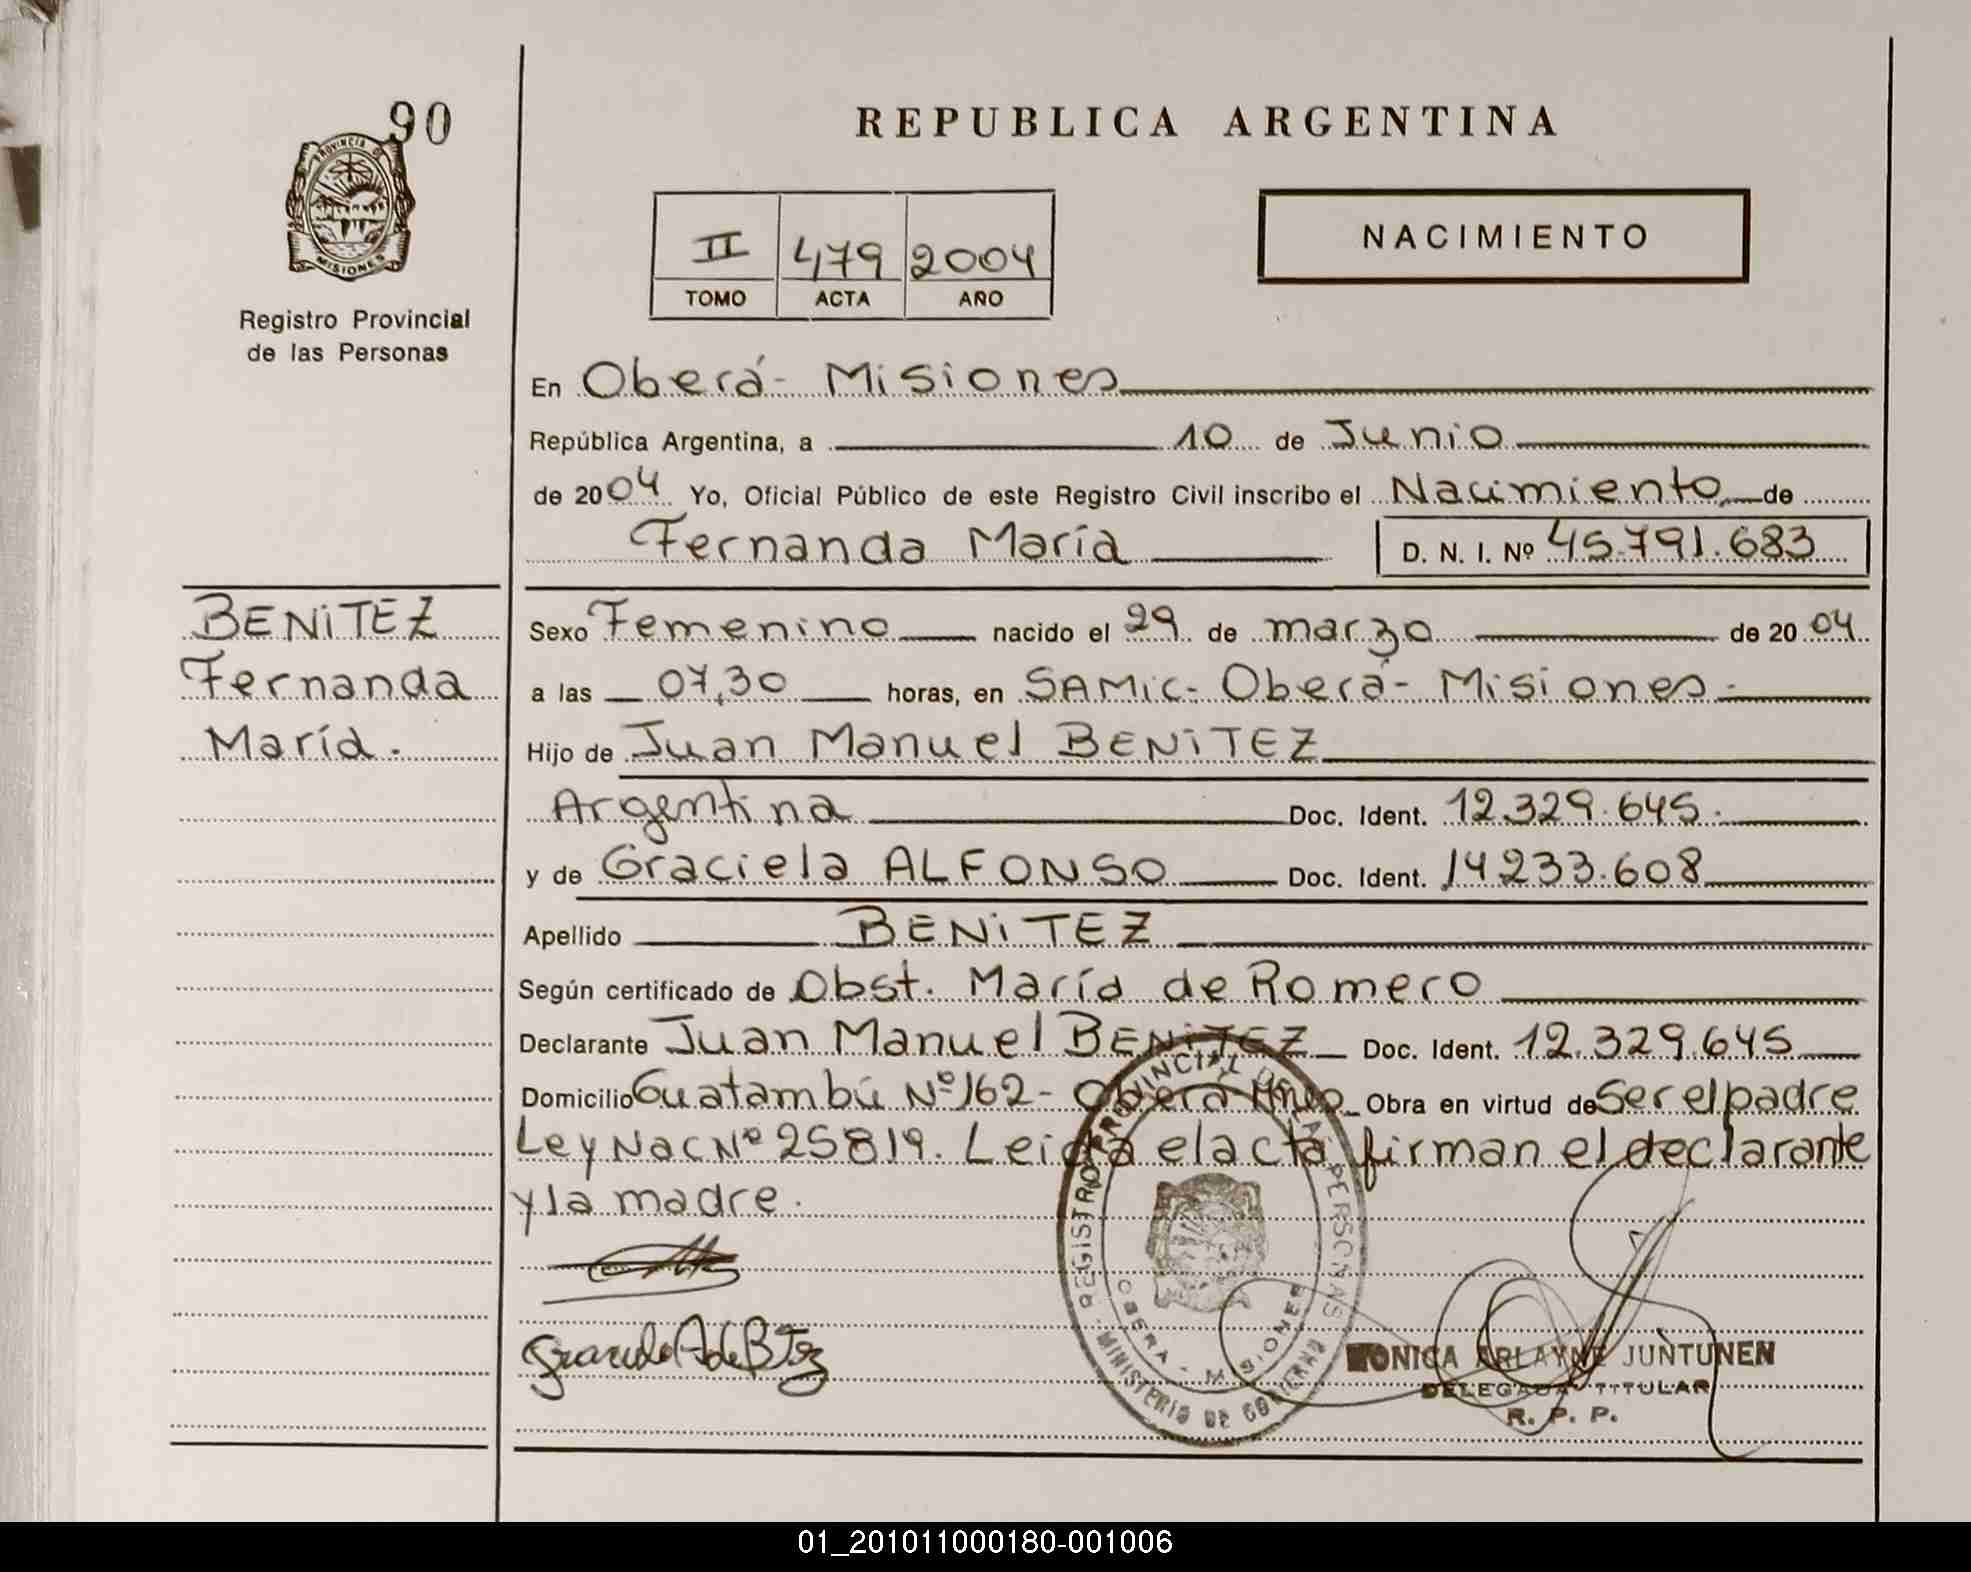 90
PROVINCIA DE
MISIONES
Registro Provincial
de las Personas
REPUBLICA ARGENTINA
II 479 2004
TOMO ACTA AÑO
NACIMIENTO
En Oberá - Misiones
República Argentina, a 10 de Junio
de 2004 Yo, Oficial Público de este Registro Civil inscribo el Nacimiento de
Fernanda María D. N. I. Nº 45.791.683
BENiTEZ
Fernanda
María.
Sexo Femenino nacido el 29 de marzo de 2004
a las 07,30 horas, en SAMiC - Oberá - Misiones -
Hijo de Juan Manuel BENiTEZ
Argentina Doc. Ident. 12.329.645.
y de Graciela ALFONSO Doc. Ident. 14.233.608
Apellido BENiTEZ
Según certificado de Obst. María de Romero
Declarante Juan Manuel BENiTEZ Doc. Ident. 12.329.645
Domicilio Guatambú Nº 162 - Oberá Mnes Obra en virtud de Ser el padre
Ley Nac Nº 25819. Leida el acta firman el declarante
y la madre.
REGISTRO PROVINCIAL DE LAS PERSONAS
OBERA - MISIONES
MINISTERIO DE GOBIERNO
MONICA ARLAYNE JUNTUNEN
DELEGADA TITULAR
R. P. P.
01_201011000180-001006